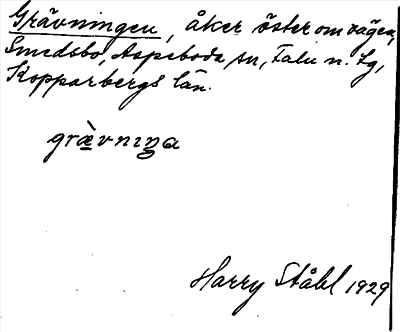 Grävningen, åker öster om vägen,
Smedsbo, Aspeboda sn, Falu n. tg,
Kopparbergs län.
græ̀vniŋa
Harry Ståhl 1929